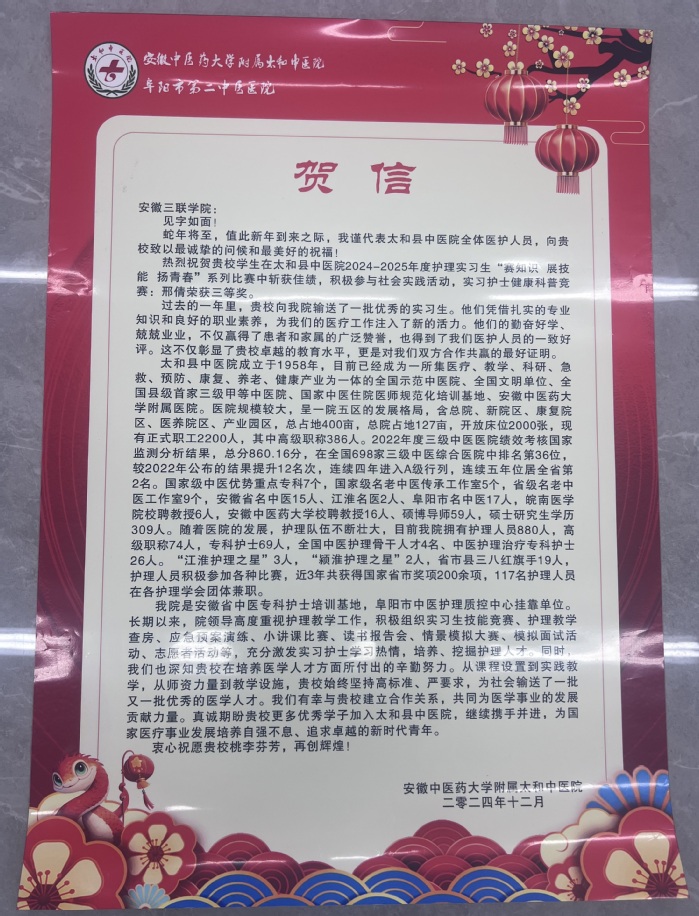 太和中医院
安徽中医药大学附属太和中医院
阜阳市第二中医医院
贺 信
安徽三联学院：
见字如面！
蛇年将至，值此新年到来之际，我谨代表太和县中医院全体医护人员，向贵
校致以最诚挚的问候和最美好的祝福！
热烈祝贺贵校学生在太和县中医院2024-2025年度护理实习生“赛知识 展技
能 扬青春”系列比赛中斩获佳绩，积极参与社会实践活动，实习护士健康科普竞
赛：邢倩荣获三等奖。
过去的一年里，贵校向我院输送了一批优秀的实习生。他们凭借扎实的专业
知识和良好的职业素养，为我们的医疗工作注入了新的活力。他们的勤奋好学、
兢兢业业，不仅赢得了患者和家属的广泛赞誉，也得到了我们医护人员的一致好
评。这不仅彰显了贵校卓越的教育水平，更是对我们双方合作共赢的最好证明。
太和县中医院成立于1958年，目前已经成为一所集医疗、教学、科研、急
救、预防、康复、养老、健康产业为一体的全国示范中医院、全国文明单位、全
国县级首家三级甲等中医院、国家中医住院医师规范化培训基地、安徽中医药大
学附属医院。医院规模较大，呈一院五区的发展格局，含总院、新院区、康复院
区、医养院区、产业园区，总占地400亩，总院占地127亩，开放床位2000张，现
有正式职工2200人，其中高级职称386人。2022年度三级中医医院绩效考核国家
监测分析结果，总分860.16分，在全国698家三级中医综合医院中排名第36位，
较2022年公布的结果提升12名次，连续四年进入A级行列，连续五年位居全省第
2名。国家级中医优势重点专科7个，国家级名老中医传承工作室5个，省级名老中
医工作室9个，安徽省名中医15人、江淮名医2人、阜阳市名中医17人，皖南医学
院校聘教授6人，安徽中医药大学校聘教授16人、硕博导师59人，硕士研究生学历
309人。随着医院的发展，护理队伍不断壮大，目前我院拥有护理人员880人，高
级职称74人，专科护士69人，全国中医护理骨干人才4名、中医护理治疗专科护士
26人。“江淮护理之星”3人，“颍淮护理之星”2人，省市县三八红旗手19人，
护理人员积极参加各种比赛，近3年共获得国家省市奖项200余项，117名护理人员
在各护理学会团体兼职。
我院是安徽省中医专科护士培训基地，阜阳市中医护理质控中心挂靠单位。
长期以来，院领导高度重视护理教学工作，积极组织实习生技能竞赛、护理教学
查房、应急预案演练、小讲课比赛、读书报告会、情景模拟大赛、模拟面试活
动、志愿者活动等，充分激发实习护士学习热情，培养、挖掘护理人才。同时，
我们也深知贵校在培养医学人才方面所付出的辛勤努力。从课程设置到实践教
学，从师资力量到教学设施，贵校始终坚持高标准、严要求，为社会输送了一批
又一批优秀的医学人才。我们有幸与贵校建立合作关系，共同为医学事业的发展
贡献力量。真诚期盼贵校更多优秀学子加入太和县中医院，继续携手并进，为国
家医疗事业发展培养自强不息、追求卓越的新时代青年。
衷心祝愿贵校桃李芬芳，再创辉煌！
安徽中医药大学附属太和中医院
二零二四年十二月